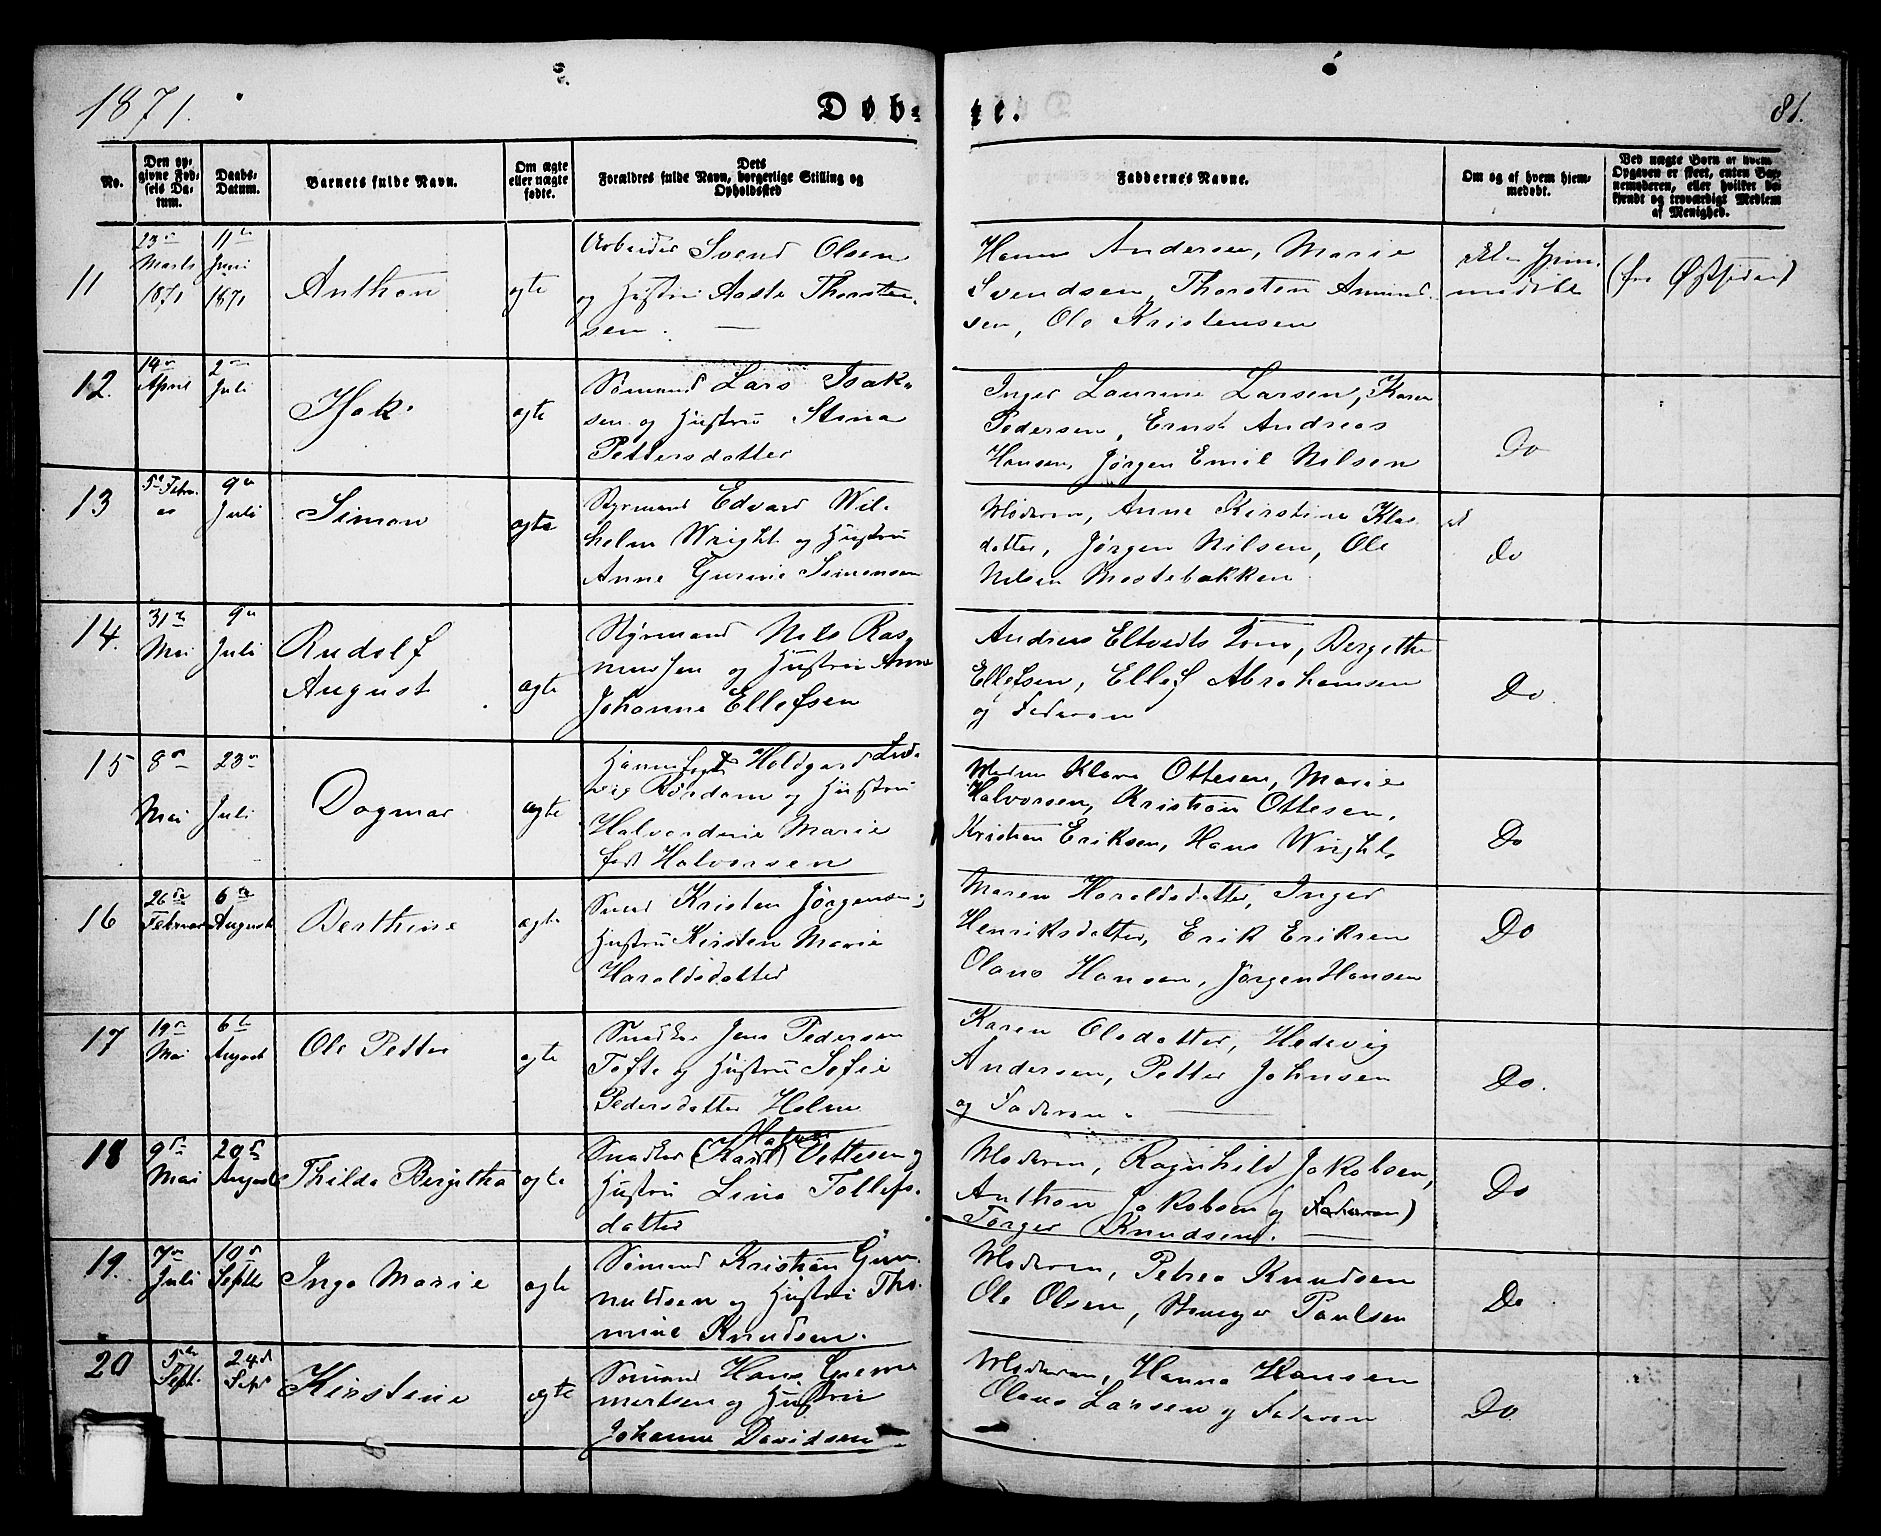 1871.
Døb-
te.
81.
No.
Den op-
givne Fød-
sels Da-
tum.
Daabs-
Datum.
Barnets fulde Navn.
Om ægte
eller uægte
fødte.
Dets
Forældres fulde Navn, borgerlige Stilling og
Opholdssted
Faddernes Navne.
Om og af hvem hjem-
medøbt.
Ved uægte Børn af hvem
Opgaven er skeet, enten Bar-
nemoderen, eller hvilket be
kjendt og troværdigt Medlem
af Menighed.
11
23
Marts
1871
11te
Juni
1871
Anthon
ægte
Arbeider Svend Olsen
og Hustru Aaste Thorsten-
sen.
Hans Andersen, Marie
Svendsen, Thorsten Amund
sen, Ole Kristensen
ikke hjem
medøbt
(fra Østsiden)
12.
14
April
2
Juli
Isak.
ægte
Sømand Lars Isak-
sen og Hustru Stina
Pettersdatter
Inger Laurine Larsen, Karen
Pedersen, Ernst Andreas
Hansen, Jørgen Emil Nilsen
Do
13
5 Febru
ar
9
Juli
Simon
ægte
Styrmand Edvard Wil-
helm Wright og Hustru
Anne Gurine Simonsen
Moderen, Anne Kirstine Klas
datter, Jørgen Nilsen, Ole
Nilsen Mostebakken
Do
14.
31
Mai
9
Juli
Rudolf
August
ægte
Styrmand Nils Ras
mussen og Hustru Anne
Johanne Ellefsen
Andrea Eltvedts Bergithe
Ellefsen, Ellef Abrahamsen
og Faderen
Do
15
8
Mai
23
Juli
Dagmar
ægte
Havnefogd Holdgard Lud-
vig Rørdam og Hustru
Halvardine Marie
født Halvorsen
Moderen Klara Ottesen, Marie
Halvorsen, Kristian Ottesen,
Kristian Eriksen, Hans Wright
Do
16
26de
Februar
6te
August
Berthine
ægte
Smed Kristen Jørgensen
Hustru Kirsten Marie
Haraldsdatter
Maren Haraldsdatter, Inger
Henriksdatter, Erik Eriksen
Olaus Hansen, Jørgen Hansen
Do
17
19
Mai
6te
August
Ole Petter
ægte
Snedker Jens Pedersen
Tofte og Hustru Sofie
Pedersdatter Holm
Karen Olsdatter, Hedevig
Andersen, Petter Johnsen
og Faderen.
Do.
18
9
Mai
20
August
Thilda Bergitha
ægte
Snedker (Karl) Vettesen og
Hustru Lina Tollefs-
datter
Moderen, Ragnhild Jakobsen,
Anthon Jakobsen og Faderen)
Torger Knudsen.
Do
19.
7
Juli
10
Septbr
Inga Marie
ægte
Sømand Kristian Gun
nuldsen og Hustru Tho-
mine Knudsen.
Moderen, Petrea Knudsen
Ole Olsen, Paulsen
Do
20
5te
Sept.
24
Sept
Kirstine
ægte
Sømand Hans Gum
mertsen og Hustru
Johanne Davidsen
Moderen, Hanna Hansen
Olaus Larsen og Faderen
Do